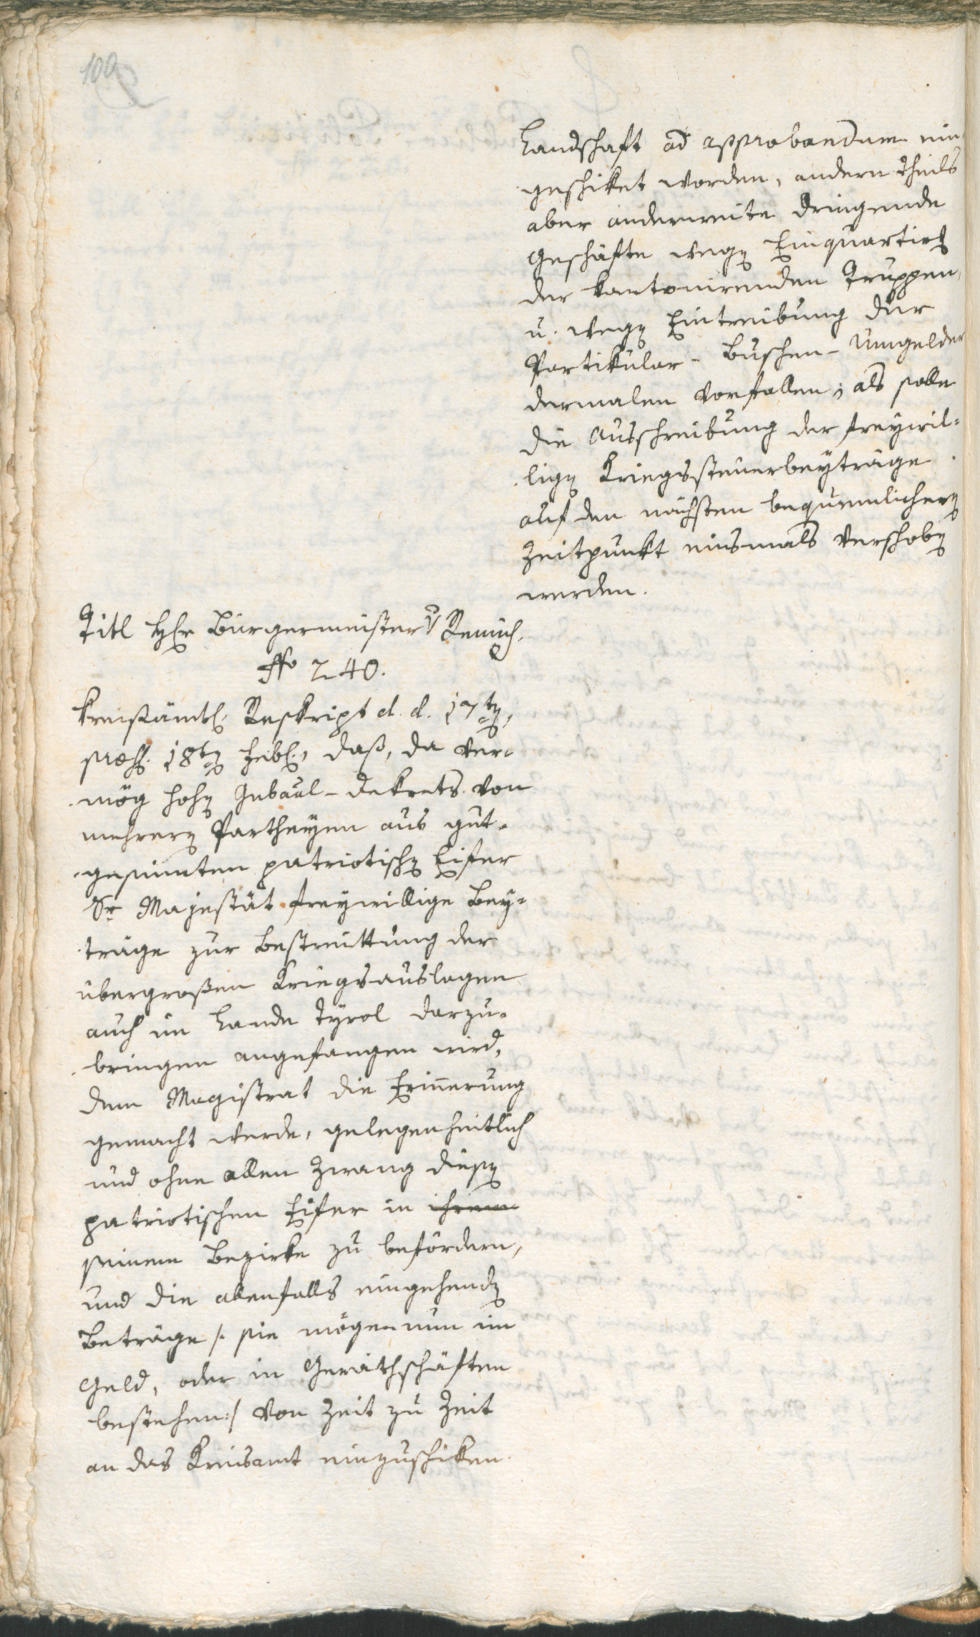 100
Landschaft ad approbandum ein
geschiket worden, andern Theils
aber anderweite dringende
Geschäfte wegen Einquartier
der kantonirenden Truppen,
u. wegen Eintreibung der
Partikular- Umgelder
dermalen vorfallen, als solle
die Ausschreibung der freywil-
ligen Kriegssteuerbeyträge
auf den nächsten bequemlichern
Zeitpunkt einsmals verschoben
werden.
Titl Hr Bürgermeister v
No 240.
Kreisämtl. Reskript d. d. 17ten,
præs. 18ten, daß, da ver-
mög hohen Gubaal-dekrets von
mehrern Partheyen aus gut-
gesinnten patriotischen Eifer
Sr Majestät freywillige Bey-
träge zur Bestreittung der
übergroßen Kriegsauslagen
auch im Lande Tyrol darzu-
bringen angefangen wird,
dem Magistrat die Erinerung
gemacht werde, gelegenheitlich
und ohne allen Zwang diesen
patriotischen Eifer in ihrem
seinem Bezirke zu befördern,
und die allenfalls eingehenden
Beträge /: sie mögen nun im
Geld, oder in Geräthschäften
bestehen :/ von Zeit zu Zeit
an das Kreisamt einzuschiken.